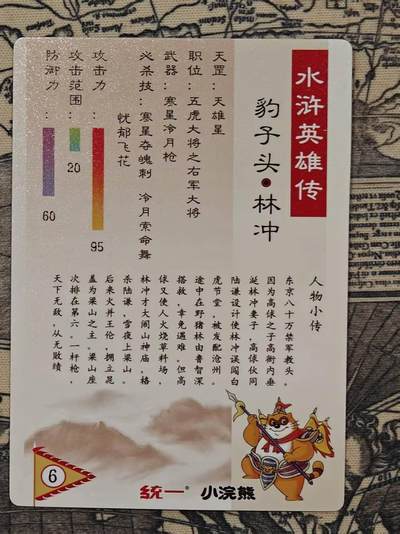 水浒英雄传
豹子头·林冲
天罡：天雄星
职位：五虎大将之右军大将
武器：寒星冷月枪
必杀技：寒星夺魄刺 冷月索命舞
忧郁飞花
攻击力：95
攻击范围：20
防御力：60
人物小传
东京八十万禁军教头。
因为高俅之子高衙内垂
涎林冲妻子，高俅伙同
陆谦设计使林冲误闯白
虎节堂，被发配沧州。
途中在野猪林由鲁智深
搭救，幸免遇难。但高
俅又使人火烧草料场，
林冲才大闹山神庙，格
杀陆谦，雪夜上梁山。
后来火并王伦，拥立晁
盖为梁山之主。梁山座
次排在第六。一杆枪，
天下无敌，从无败绩
6
统一® 小浣熊